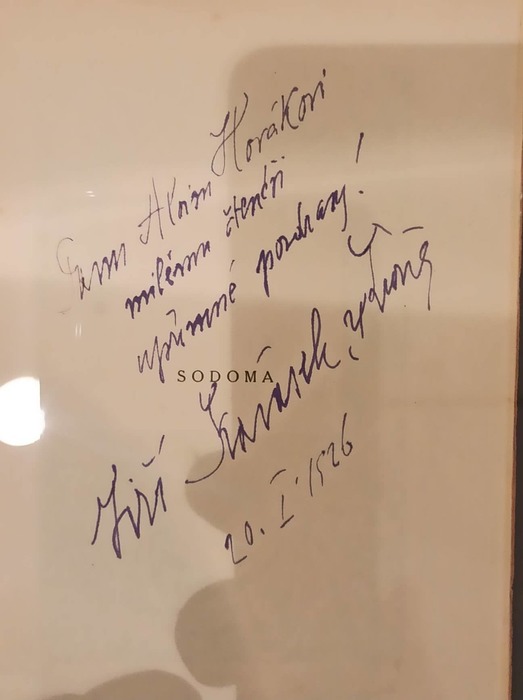 Panu Aloisu Horákovi
milému čtenáři
upřímné pozdravy!
SODOMA
Jiří Karásek ze Lvovic
20. I. 1926